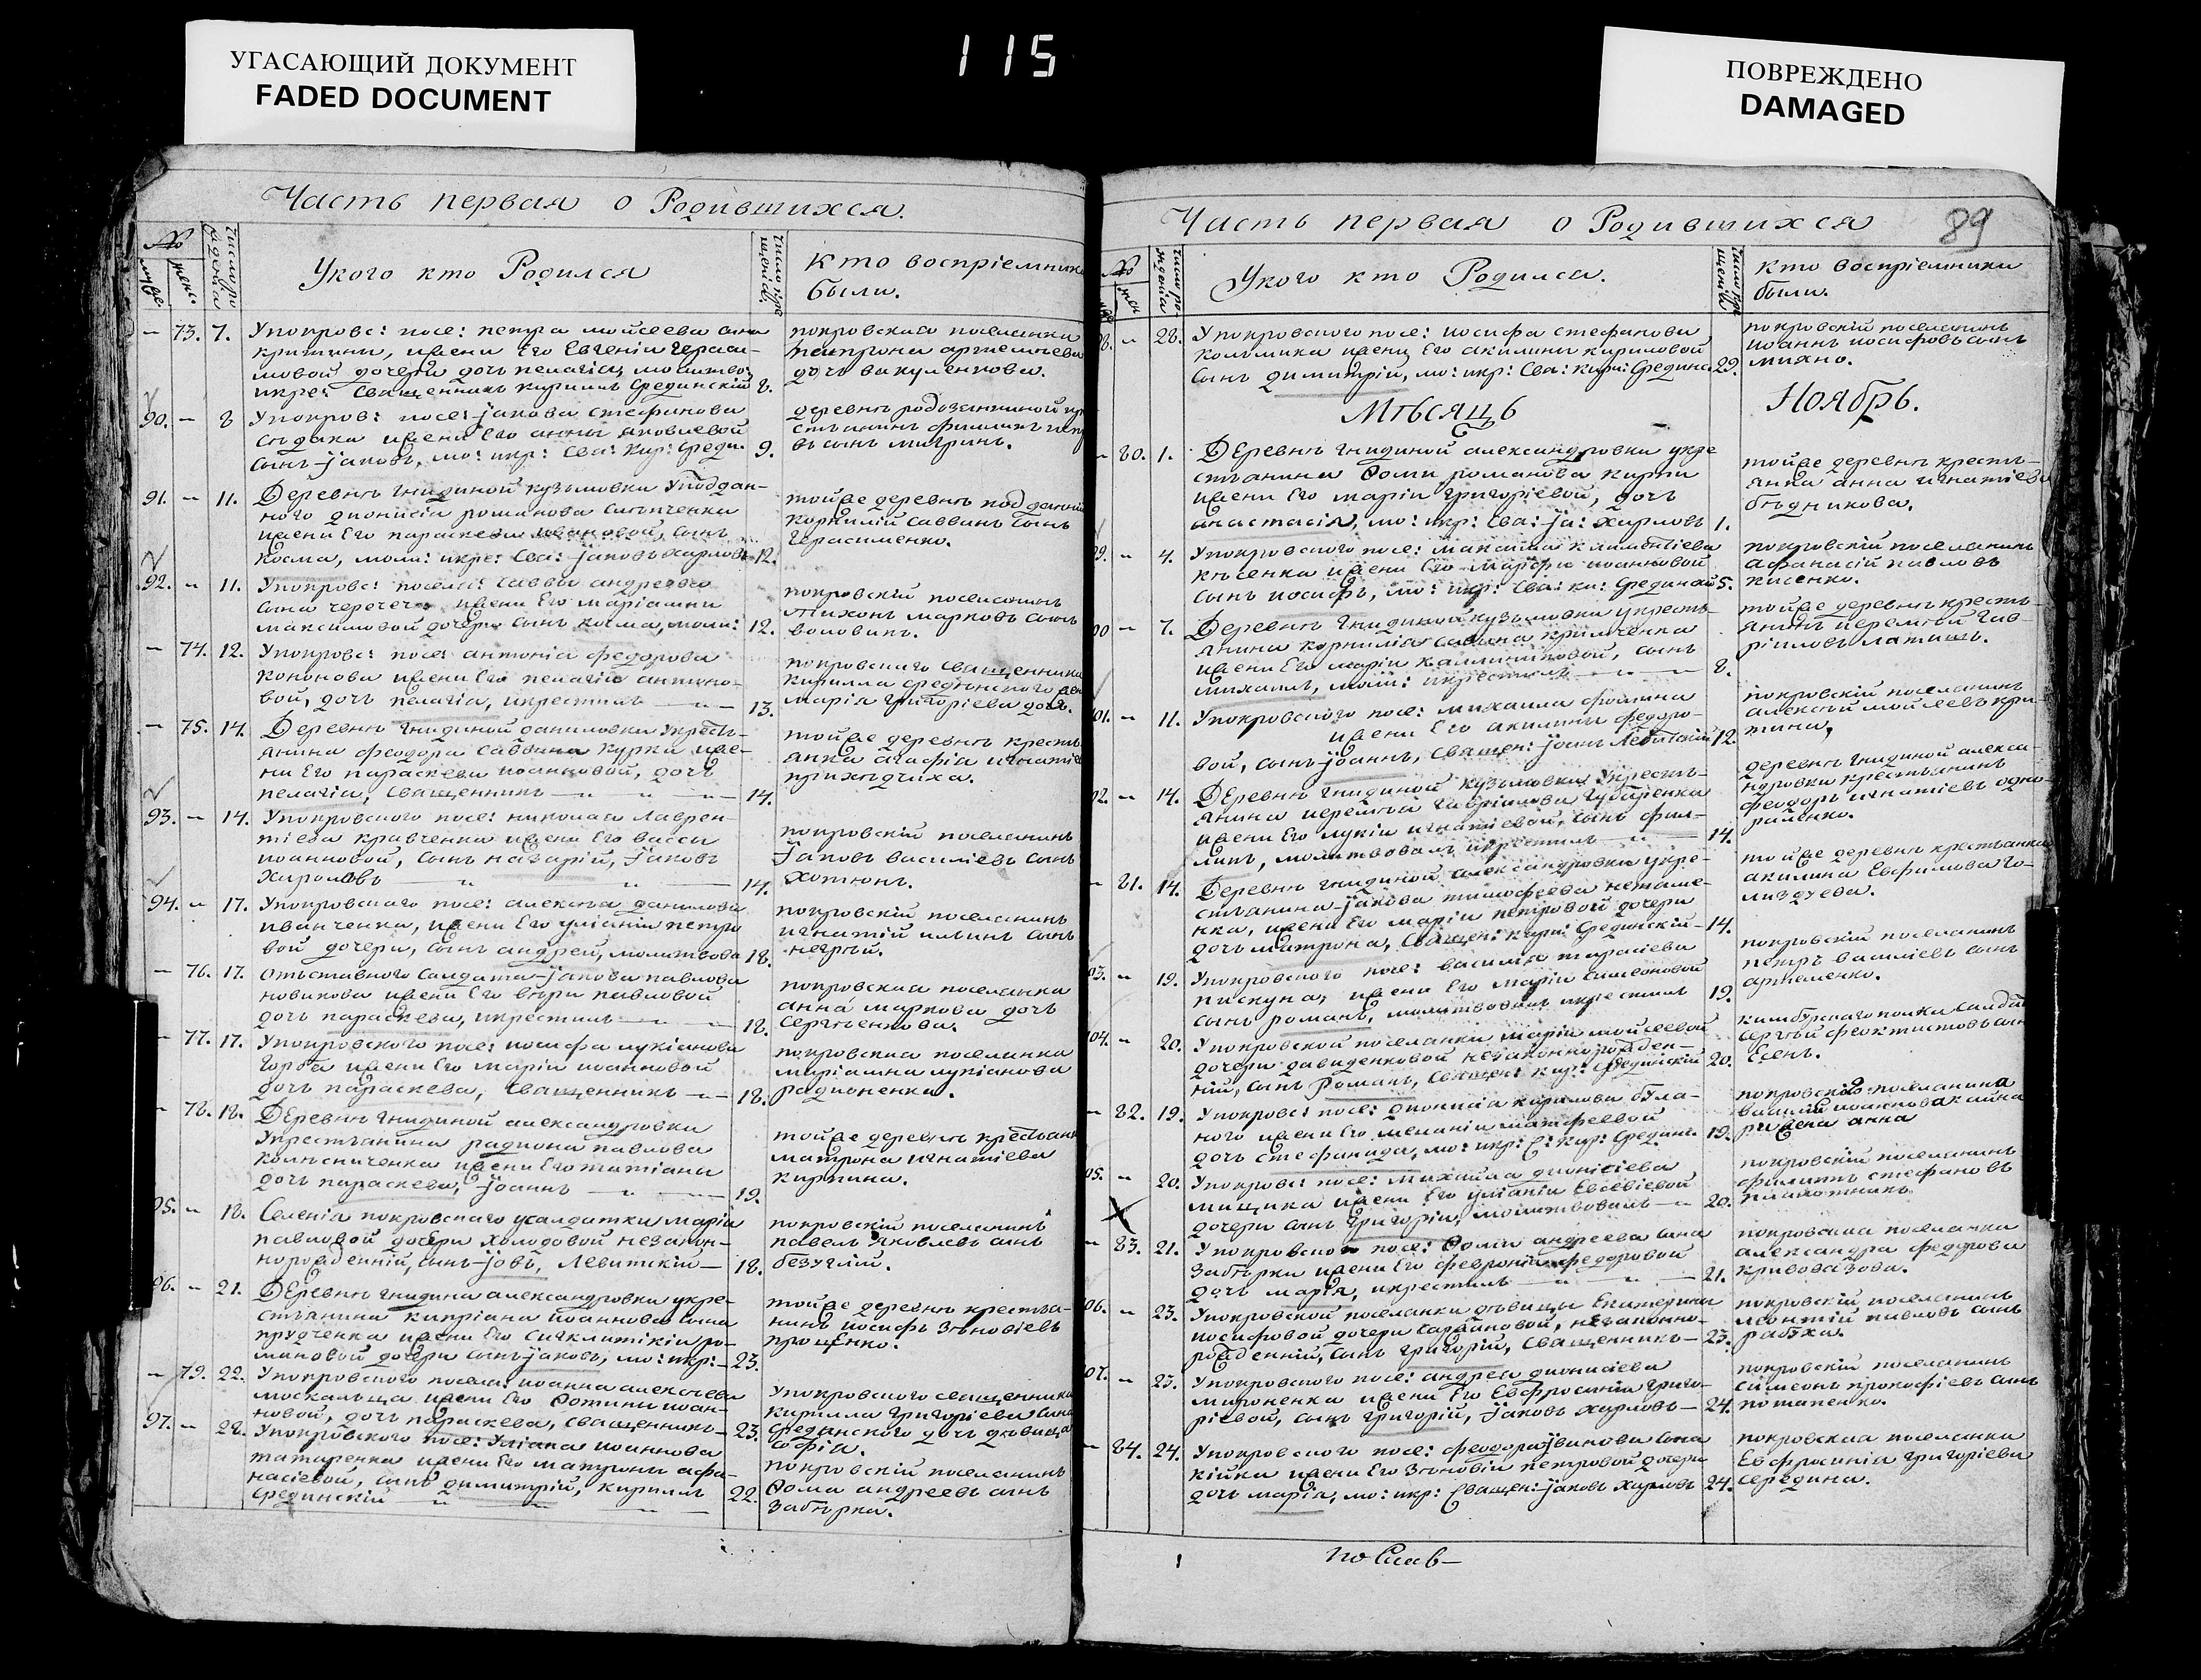 УГАСАЮЩИЙ ДОКУМЕНТ
FADED DOCUMENT
115
ПОВРЕЖДЕНО
DAMAGED
Часть первая о Родившихся.
№
Укого кто Родился
Кто воспріемники
были.
73. 7. Упокровс: посе: петра мойсеева сына
имени Его Евгеніи Гераси-
мовой дочери дочь пелагія, молитво:
икре: Священникъ Кириллъ Срединскій 8.
покровская поселянка
дочь вакуленкова.
90. 8 Упокров: посе: Јакова стефанова
имени Его анны яковлевой
сынъ Јаковъ, мо: икр: Свя: Кир: Среди. 9.
деревнѣ
91. 11. Деревнѣ гнидиной кузьмовки Уподдан-
ного діонисія романова
имени Его параскеви ивановой, сынъ
Косма, моли: икре: Свя: Јаковъ Харловъ 12.
тойже деревнѣ подданый
Корнилій саввинъ сынъ
Герасименко.
92. 11. Упокровс: поселя: саввы андреева
сына имени Его маріамни
максимовой дочери сынъ косма, моли: 12.
покровскій поселянинъ
Тихонъ марковъ сынъ
воловикъ.
74. 12. Упокровс: посе: антонія федорова
кононова имени Его пелагіи антоно-
вой, дочь пелагія, икрестилъ 13.
покровского Священника
Кирилла срединского
марія Григоріева дочь.
75. 14. Деревнѣ гнидиной даниловки Укресть-
янина феодора саввина курки име-
ни Его параскеви иоанновой, дочь
пелагія, Священникъ 14.
тойже деревнѣ кресть
янка агафія игнатіе
93. 14. Упокровского посе: николая Лаврен-
тіева кравченка имени Его вассы
иоанновой, сынъ назарій, Јаковъ
Харловъ 14.
покровскій поселянинъ
Јаковъ василіевъ сынъ
хотюнъ.
94. 17. Упокровского посе: алексѣя данилова
иванченка, имени Его уліаніи петро
вой дочери, сынъ андрей, молитвова 18.
покровскій поселянинъ
игнатій ильинъ сынъ
негрѣй.
76. 17. Отъставного Салдата Јакова павлова
новикова имени Его павловой
дочь параскева, икрестилъ 18.
покровская поселянка
анна маркова дочь
Сергѣенкова.
77. 17. Упокровского посе: иосифа лукіанова
горба имени Его маріи иоанновой
дочь параскева, Священникъ 18.
покровская поселянка
маріамна лукіанова
радионенка.
78. 18. Деревнѣ гнидиной александровки
Укрестьянина радиона павлова
колѣсниченка имени Его татіани
дочь параскева, Јоаннъ 19.
тойже деревнѣ крестьянк
матрона игнатіева
95. 18. Селенія покровского усалдатки маріи
павловой дочери холодовой незакон-
норожденній, сынъ Јовъ, Левитскій 18.
покровскій поселянинъ
павелъ яковлевъ сынъ
безуглій.
96. 21. Деревнѣ гнидина александровки укре-
стьянина кипріана иоаннова сына
прудченка имени Его синклитикіи ро-
мановой дочери сынъ Јаковъ, мо: икр: 23.
тойже деревнѣ крестья-
нинъ иосифъ Зѣновіевъ
прощенко.
79. 22. Упокровского поселя: иоанна алексѣева
москальца имени Его Фотини иоан-
новой, дочь параскева, Священникъ 23.
Упокровского священника
Кирилла Григоріева сына
срединского дочь дѣвица
софія.
97. 22. Упокровского посе: Уліана иоаннова
татаренка имени Его матрони афа-
насіевой, сынъ димитрій, кириллъ
Срединскій 22.
покровскій поселянинъ
Фома андреевъ сынъ
Забѣрка.
Часть первая о Родившихся
89
№
Укого кто Родился.
Кто воспріемники
были.
98. 28. Упокровского посе: иосифа стефанова
коломійца имени Его акилины кириловой
сынъ димитрій, мо: икр: Свя: Кир: Срединс 29.
покровскій поселянинъ
иоаннъ иосифовъ сынъ
михно.
Мѣсяцъ
Ноябрь.
80. 1. Деревнѣ гнидиной александровки укре
стьянина Фоми романова
имени Его маріи григоріевой, дочь
анастасія, мо: икр: Свя: Ја: Харловъ 1.
тойже деревнѣ кресть-
янка анна игнатіева
бѣдникова.
99. 4. Упокровского посе: максима климентіева
имени Его марфи иоанновой
сынъ иосифъ, мо: икр: Свя: ки: Срединскій 5.
покровскій поселянинъ
афанасій павловъ
кисенко.
100 7. Деревнѣ гнидиной кузьмовки укресть-
янина корнилія савина
имени Его маріи Калиниковой, сынъ
михаилъ, моли: икрестилъ 8.
тойже деревнѣ кресть-
янинъ иеремій гав-
ріиловъ латишъ.
101. 11. Упокровского посе: михаила фомина
имени Его акилини федоро-
вой, сынъ Јоаннъ, Священ: Јоанъ Левитскій 12.
покровскій поселянинъ
алексѣй мойсеевъ кри-
тина.
102. 14. Деревнѣ гнидиной кузьмовки Укресть-
янина иереміи гавріилова губаренка
имени Его лукіи игнатіевой, сынъ фили-
липъ, молитвовалъ икрестилъ 14.
деревнѣ гнидиной алекса-
ндровки крестьянинъ
феодоръ игнатіевъ
81. 14. Деревнѣ гнидиной александровки укре-
стьянина Јакова тимофеева
имени Его маріи петровой дочери
дочь матрона, Священ: Кир: Срединскій 14.
тойже деревнѣ крестьянка
акилина Евфимова
103. 19. Упокровского посе: василія тарасіева
пискуна, имени Его маріи симеоновой
сынъ романъ, молитвовалъ икрестилъ 19.
покровскій поселянинъ
петръ василіевъ сынъ
артеменко.
104. 20. Упокровской поселянки маріи мойсеевой
дочери давиденковой незаконнорожден-
ній, сынъ Романъ, Священ: Кир: Срединскій 20.
кинбурнского полка салдат
сергѣй феоктистовъ сын
Есенъ.
82. 19. Упокровс: посе: діонисія карпова бѣла-
ного имени Его меланіи матфеевой
дочь стефанида, мо: икр: С: Кир: Срединс. 19.
покровскаго поселянина
василія
жена анна
105. 20. Упокровс: посе: михаила діонисіева
мищика имени Его уліаніи Евсевіевой
дочери сынъ Григорій, молитвовалъ 20.
покровскій поселянинъ
филиппъ стефановъ
плахотникъ
83. 21. Упокровского посе: Фоми андреева сына
Забѣрки имени Его февроніи федоровой
дочь марія, икрестилъ 21.
покровская поселянка
александра федорова
кривовазова.
106. 23. Упокровской поселянки дѣвицы Екатерины
иосифовой дочери незаконно-
рожденній, сынъ Григорій, Священникъ 23.
покровскій поселянинъ
леонтій павловъ сынъ
рабѣка.
107. 23. Упокровского посе: андрея діонисіева
мироненка имени Его Евфросиніи григо-
ріевой, сынъ Григорій, Јаковъ Харловъ 24.
покровскій поселянинъ
симеонъ прокофіевъ сынъ
потапенко.
84. 24. Упокровского посе: феодора Јванова сына
кійка имени Его Зѣновіи петровой дочери
дочь марія, мо: икр: Священ: Јаковъ Харловъ 24.
покровская поселянка
Евфросинія григоріева
середина.